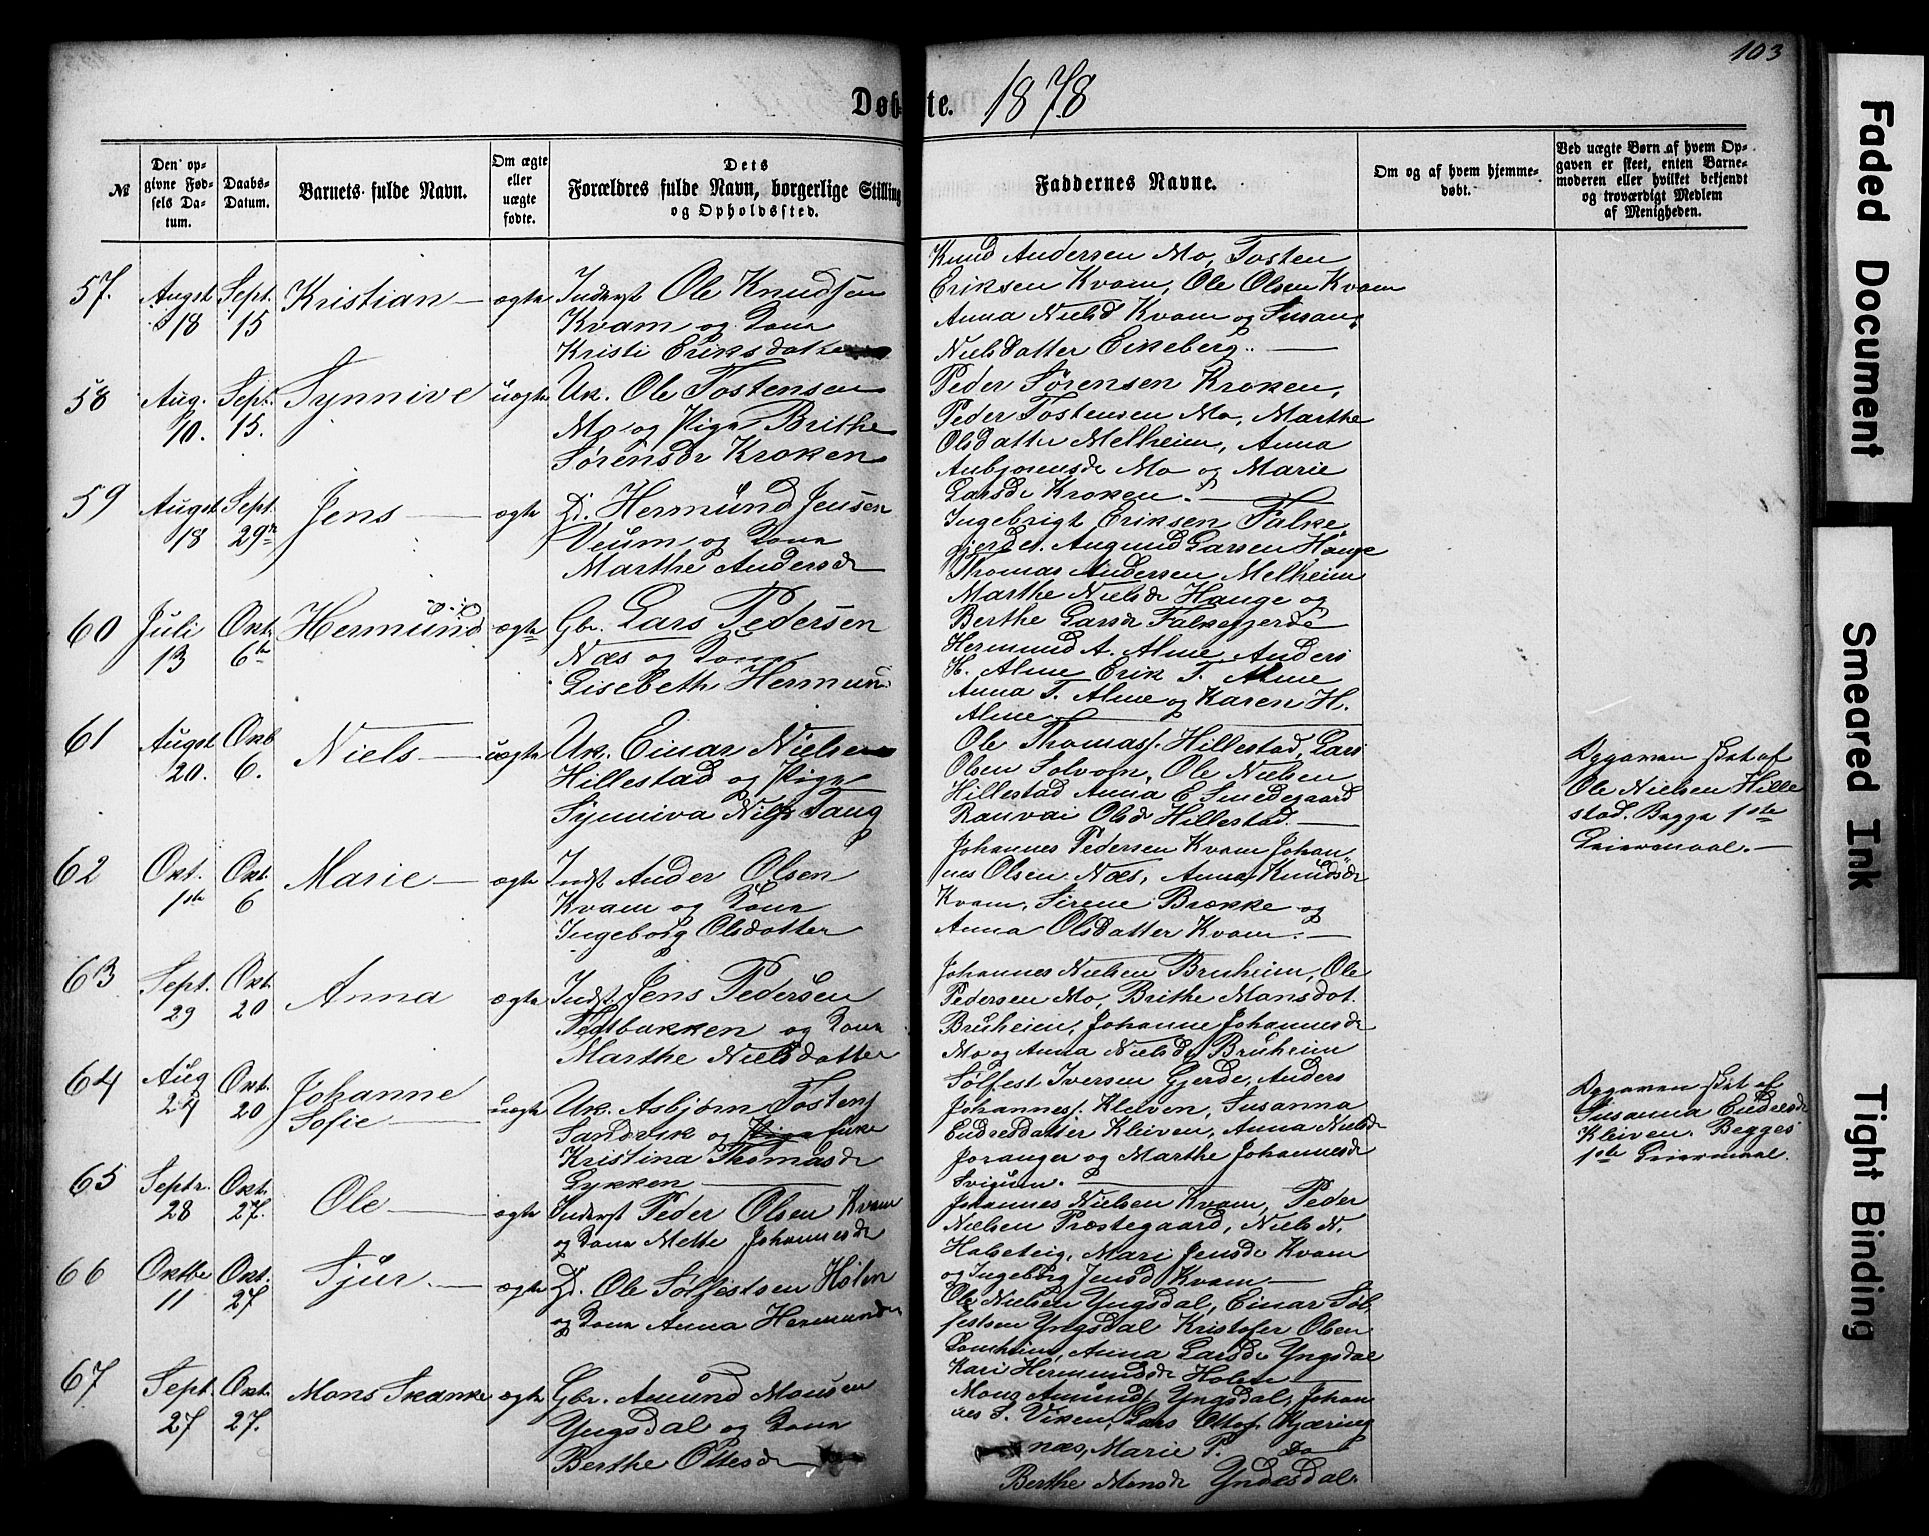 103
Døb-
te. 1878
№
Den op-
givne Fød-
sels Da-
tum.
Daabs-
Datum.
Barnets fulde Navn.
Om ægte
eller
uægte
fødte.
Dets
Forældres fulde Navn, borgerlige Stilling
og Opholdssted.
Faddernes Navne.
Om og af hvem hjemme-
døbt.
Ved uægte Børn af hvem Op-
gaven er skeet, enten Barne-
moderen eller hvilket bekjendt
og troværdigt Medlem
af Menigheden.
57. Augst 18 Sept. 15 Kristian ægte
Inderst Ole Knudsen
Kvam og Kona
Kristi Eriksdatter
Knud Andersen Mo, Tosten
Eriksen Kvam, Ole Olsen Kvam
Anna Nielsd Kvam og Susan
Nielsdatter Eikeberg.
58 Aug. 10. Sept. 15. Synnive uægte
Uk. Ole Tostensen
Mo og Pige Brithe
Sørensdr Kroken
Peder Sørensen Kroken,
Peder Tostensen Mo, Marthe
Olsdatter Melheim, Anna
Anbjørensdr Mo og Marie
Larsdr Kroken.
59 Augst 18 Sept. 29 Jens ægte
Hermund Jensen
Veum og Kona
Marthe Andersdr
Ingebrigt Eriksen Falke
gjerdet. Augund Larsen Hauge
Thomas Andersen Melheim
Marthe Nielsdr Hauge og
Berthe Larsdr Falkegjerde
60 Juli 13 Okt. 6te Hermund ægte
Gbr. Lars Pedersen
Næs og Kona
Lisebeth Hermun
Hermund A. Alme Anders
H. Alme Erik T. Alme
Anna T. Alme og Karen H.
Alme
61 Augst 20. Okt 6. Niels uægte
Uk. Einar Nielsen
Hillestad og Pige
Synniva Nilsdr Taug
Ole Thomass. Hillestad, Lars
Olsen Solvorn, Ole Nielsen
Hillestad Anna E Smedegaard
Ranvai Olsdr Hillestad.
Opgaven sket af
Ole Nielsen Hille
stad. Begge 1ste
Leiermaal.
62 Okt. 1ste Okt 6 Marie ægte
Indst Ander Olsen
Kvam og Kona
Ingeborg Olsdatter
Johannes Pedersen Kvam Johan
nes Olsen Næs, Anna Knudsdr
Kvam, Sirene Brække og
Anna Olsdatter Kvam.
63 Sept. 29 Okt. 20 Anna ægte
Indst. Jens Pedersen
Teigbakken og Kona
Marthe Nielsdatter
Johannes Nielsen Bruheim, Ole
Pedersen Mo, Brithe Monsdot.
Bruheim, Johanne Johannesdr
Mo og Anna Nielsdr Bruheim
64 Aug 24 Okt. 20 Johanne
Sofie uægte
Uk. Asbjørn Tostens
Sandvik og Pige Enke
Kristina Thomasdr
Lykken
Sølfest Iversen Gjerde, Anders
Johanness. Kleiven, Susanna
Endresdatter Kleiven, Anna Nielsdr
Joranger og Marthe Johannesdr
Svigum.
Opgaven sket af
Susanna Endresdr
Kleiven. Begges
1ste Leiermaal.
65 Septr. 28 Okt. 27. Ole ægte
Inderst Peder Olsen Kvam
og Kona Mette Johannesdr
Johannes Nielsen Kvam, Peder
Nielsen Præstegaard, Niels N.
Halseteig, Mari Jensdr Kvam
og Ingeborg Jensd Kvam
66 Oktbr 11 Okt. 27 Sjur. ægte
Ole Sølfestsen Holen
og Kona Anna Hermundsdr
Ole Nielsen Yngsdal, Einar Søl
festsen Yngsdal Kristofer Olsen
Lomheim, Anna Larsdr Yngsdal
Kari Hermundsdr Holen
67 Sept 27 Okt. 27. Mons Skanke ægte
Gbr. Amund Monsen
Yngsdal og Kona
Berthe Ottesdr
Mons Amunds. Yngsdal, Johan
nes S. Viken, Lars Ottos. Kjæring
næs, Marie P. Do
Berthe Monsdr Yndesdal.
Faded Document
Smeared Ink
Tight Binding